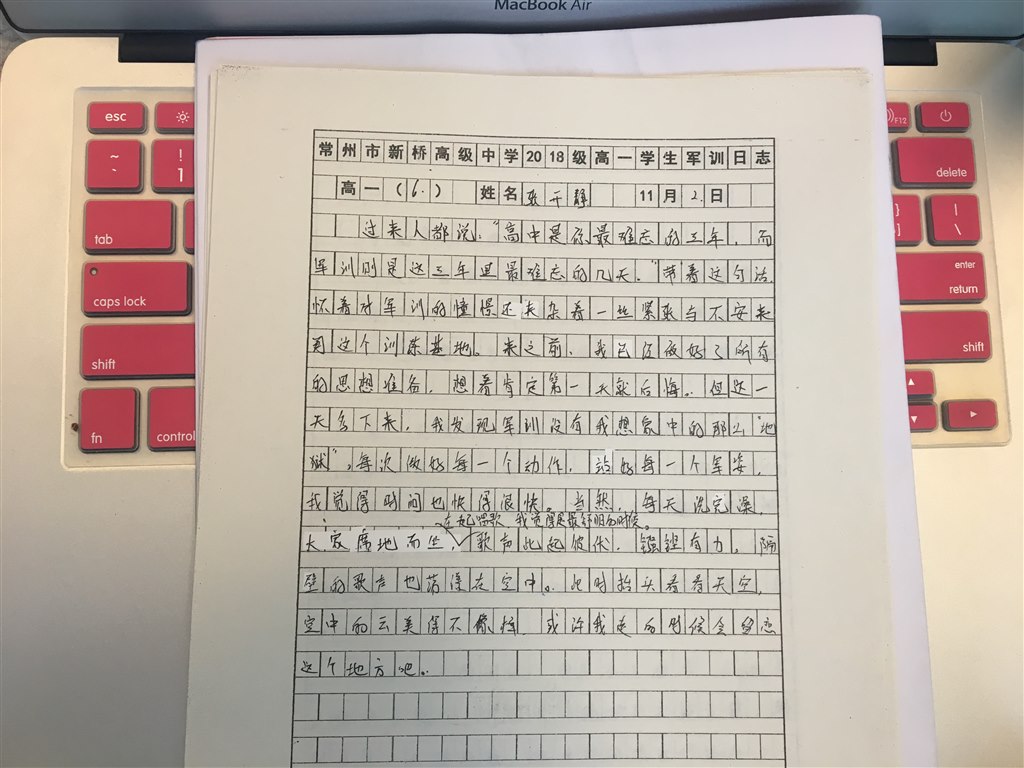 MacBook Air
esc
F12
~
`
!
1
delete
tab
}
]
|
\
caps lock
enter
return
shift
shift
fn
control
常州市新桥高级中学2018级高一学生军训日志
高一(6.) 姓名 张 静 11月2.日
过来人都说:“高中是你最难忘的三年,而
军训则是这三年里最难忘的几天。”带着这句话
怀着对军训的憧憬还夹杂着一丝紧张与不安来
到这个训练基地。来之前,我已经做好了所有
的思想准备,想着肯定第一天就后悔。但这一
天多下来,我发现军训没有我想象中的那么“地
狱”。每次做好每一个动作,站好每一个军姿,
我觉得时间也快得很快。当然,每天洗完澡,
在一起唱歌,我觉得是最舒服的时候。
大家席地而坐,歌声此起彼伏,铿锵有力。隔
壁的歌声也荡漾在空中。此时抬头看看天空,
空中的云美得不像话,或许我走的时候会留恋
这个地方吧。